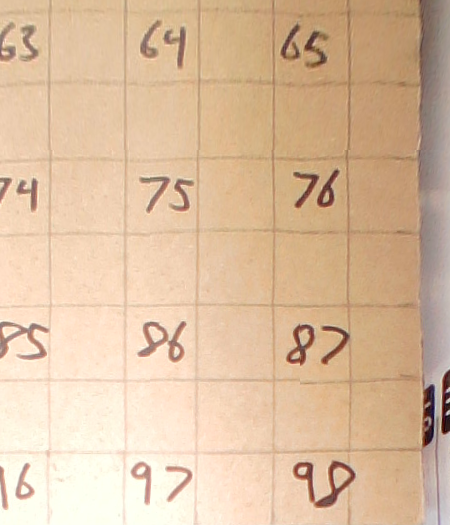 63 64 65
74 75 76
85 86 87
96 97 98